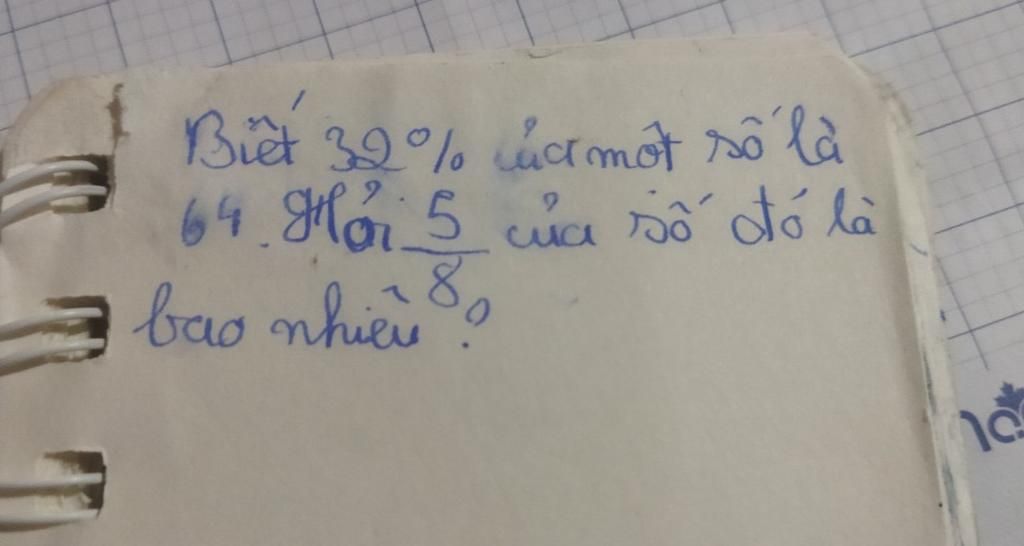 Biết 32% của một số là
64. Hỏi 5/8 của số đó là
bao nhiêu?